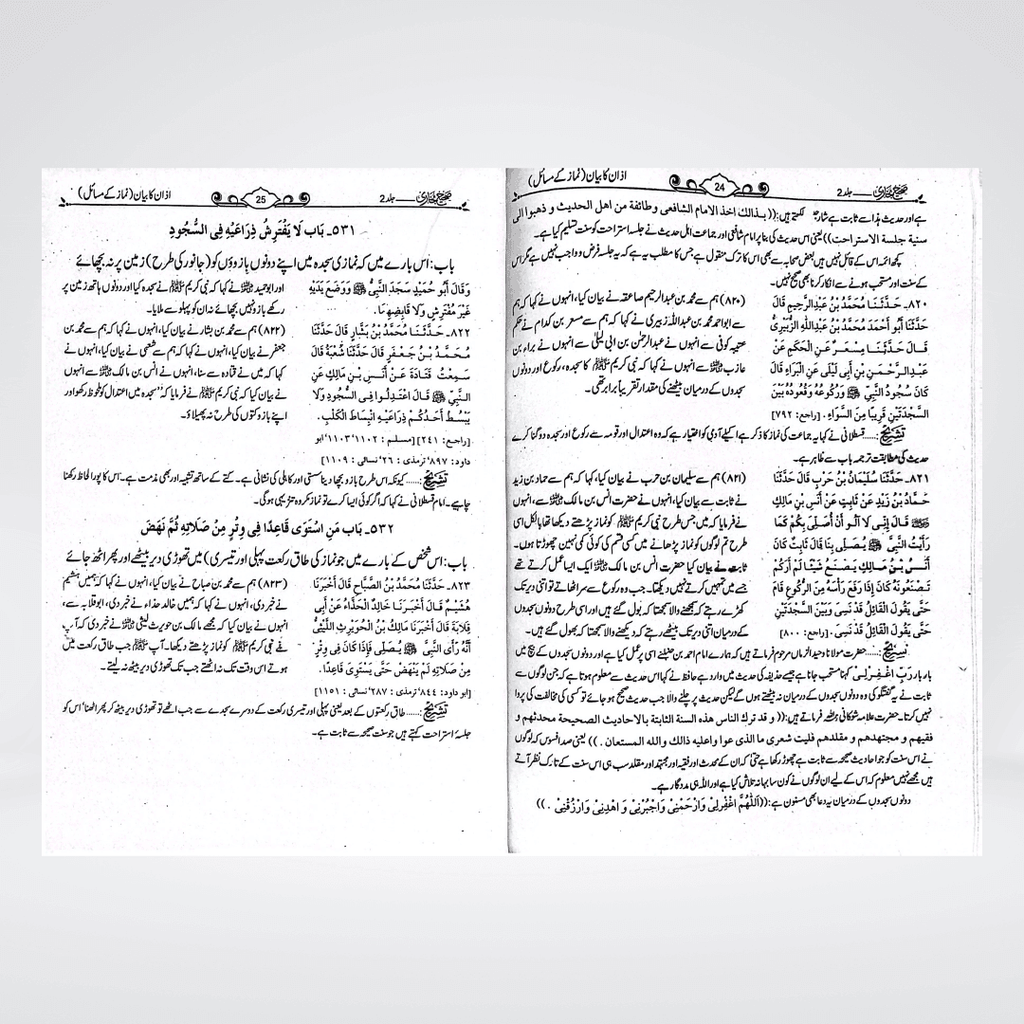 صحیح بخاری ـــــ جلد 2
24
اذان کا بیان (نماز کے مسائل)
ہے اور حدیث ہذا سے ثابت ہے شارح لکھتے ہیں: ((بذالک اخذ الامام الشافعی وطائفة من اھل الحدیث و ذھبوا الی
سنیة جلسة الاستراحت)) یعنی اس حدیث کی بنا پر امام شافعی اور جماعت اہل حدیث نے جلسہ استراحت کو سنت تسلیم کیا ہے۔
کچھ ائمہ اس کے قائل نہیں ہیں بعض صحابہ سے بھی اس کا ترک منقول ہے جس کا مطلب یہ ہے کہ یہ جلسہ فرض و واجب نہیں ہے مگر اس
کے سنت اور مستحب ہونے سے انکار کرنا بھی صحیح نہیں۔
۸۲۰۔ حَدَّثَنَا مُحَمَّدُ بْنُ عَبْدِالرَّحِيمِ قَالَ
حَدَّثَنَا أَبُو أَحْمَدَ مُحَمَّدُ بْنُ عَبْدِاللَّهِ الزُّبَيْرِيُّ
قَالَ حَدَّثَنَا مِسْعَرٌ عَنِ الْحَكَمِ عَنْ
عَبْدِالرَّحْمَنِ بْنِ أَبِي لَيْلَى عَنِ الْبَرَاءِ قَالَ
كَانَ سُجُودُ النَّبِيِّ ﷺ وَرُكُوعُهُ وَقُعُودُهُ بَيْنَ
السَّجْدَتَيْنِ قَرِيبًا مِنَ السَّوَاءِ. [راجع: ۷۹۲]
(۸۲۰) ہم سے محمد بن عبدالرحیم صاعقہ نے بیان کیا، انہوں نے کہا کہ ہم
سے ابواحمد محمد بن عبداللہ زبیری نے کہا کہ ہم سے مسعر بن کدام نے حکم
عتیبہ کوفی سے انہوں نے عبدالرحمٰن بن ابی لیلیٰ سے انہوں نے براء بن
عازب رضی اللہ عنہ سے انہوں نے کہا کہ نبی کریم ﷺ کا سجدہ، رکوع اور دونوں
سجدوں کے درمیان بیٹھنے کی مقدار تقریباً برابر تھی۔
تشریح:..... قسطلانی نے کہا یہ جماعت کی نماز کا ذکر ہے اکیلے آدمی کو اختیار ہے کہ وہ اعتدال اور قومہ سے رکوع اور سجدہ دوگنا کرے
حدیث کی مطابقت ترجمہ باب سے ظاہر ہے۔
۸۲۱۔ حَدَّثَنَا سُلَيْمَانُ بْنُ حَرْبٍ قَالَ حَدَّثَنَا
حَمَّادُ بْنُ زَيْدٍ عَنْ ثَابِتٍ عَنْ أَنَسِ بْنِ مَالِكٍ
رضی اللہ عنہ قَالَ إِنِّي لَا آلُو أَنْ أُصَلِّيَ بِكُمْ كَمَا
رَأَيْتُ النَّبِيَّ ﷺ يُصَلِّي بِنَا قَالَ ثَابِتٌ كَانَ
أَنَسُ بْنُ مَالِكٍ يَصْنَعُ شَيْئًا لَمْ أَرَكُمْ
تَصْنَعُونَهُ كَانَ إِذَا رَفَعَ رَأْسَهُ مِنَ الرُّكُوعِ قَامَ
حَتَّى يَقُولَ الْقَائِلُ قَدْ نَسِيَ وَبَيْنَ السَّجْدَتَيْنِ
حَتَّى يَقُولَ الْقَائِلُ قَدْ نَسِيَ. [راجع: ۸۰۰]
(۸۲۱) ہم سے سلیمان بن حرب نے بیان کیا، کہا کہ ہم سے حماد بن زید
نے ثابت سے بیان کیا، انہوں نے حضرت انس بن مالک رضی اللہ عنہ سے، انہوں
نے فرمایا کہ میں جس طرح نبی کریم ﷺ کو نماز پڑھتے دیکھا تھا بالکل اسی
طرح تم لوگوں کو نماز پڑھانے میں کسی قسم کی کوئی کمی نہیں چھوڑتا ہوں۔
ثابت نے بیان کیا حضرت انس بن مالک رضی اللہ عنہ ایک ایسا عمل کرتے تھے
جسے میں تمہیں کرتے نہیں دیکھتا۔ جب وہ رکوع سے سر اٹھاتے تو اتنی دیر تک
کھڑے رہتے کہ سمجھنے والا سمجھتا کہ بھول گئے ہیں اور اسی طرح دونوں سجدوں
کے درمیان اتنی دیر تک بیٹھے رہتے کہ دیکھنے والا سمجھتا کہ بھول گئے ہیں۔
تشریح:..... حضرت مولانا وحید الزماں مرحوم فرماتے ہیں کہ ہمارے امام احمد بن حنبل نے اسی پر عمل کیا ہے اور دونوں سجدوں کے بیچ میں
بار بار رَبِّ اغْفِرْلِیْ کہنا مستحب جانا ہے جیسے حذیفہ کی حدیث میں وارد ہے حافظ نے کہا اس حدیث سے معلوم ہوتا ہے کہ جن لوگوں سے
ثابت نے یہ گفتگو کی وہ دونوں سجدوں کے درمیان نہ بیٹھتے ہوں گے لیکن حدیث پر چلنے والا جب حدیث صحیح ہو جائے تو کسی کی مخالفت کی پروا
نہیں کرتا۔ حضرت علامہ شوکانی رحمۃ اللہ علیہ فرماتے ہیں: ((و قد ترک الناس ھذہ السنة الثابتة بالاحادیث الصحیحة محدثھم و
فقیھم و مجتھدھم و مقلدھم فلیت شعری ما الذی عوا واعلیه ذالك والله المستعان.)) یعنی صد افسوس کہ لوگوں
نے اس سنت کو جو احادیث صحیحہ سے ثابت ہے چھوڑ رکھا ہے حتیٰ کہ ان کے محدث اور فقیہ اور مجتہد اور مقلد سب ہی اس سنت کے تارک نظر آتے
ہیں مجھے نہیں معلوم کہ اس کے لیے ان لوگوں نے کون سا بہانہ تلاش کیا ہے اور اللہ ہی مددگار ہے۔
دونوں سجدوں کے درمیان یہ دعا بھی مسنون ہے: ((اَللّٰهُمَّ اغْفِرْلِیْ وَارْحَمْنِیْ وَاجْبُرْنِیْ وَ اهْدِنِیْ وَارْزُقْنِیْ.))
صحیح بخاری ـــــ جلد 2
25
اذان کا بیان (نماز کے مسائل)
۵۳۱۔ بَاب لَا يَفْتَرِشُ ذِرَاعَيْهِ فِي السُّجُودِ
باب: اس بارے میں کہ نمازی سجدہ میں اپنے دونوں بازوؤں کو (جانور کی طرح) زمین پر نہ بچھائے
وَقَالَ أَبُو حُمَيْدٍ سَجَدَ النَّبِيُّ ﷺ وَوَضَعَ يَدَيْهِ
غَيْرَ مُفْتَرِشٍ وَلَا قَابِضِهِمَا.
۸۲۲۔ حَدَّثَنَا مُحَمَّدُ بْنُ بَشَّارٍ قَالَ حَدَّثَنَا
مُحَمَّدُ بْنُ جَعْفَرٍ قَالَ حَدَّثَنَا شُعْبَةُ قَالَ
سَمِعْتُ قَتَادَةَ عَنْ أَنَسِ بْنِ مَالِكٍ عَنِ
النَّبِيِّ ﷺ قَالَ اعْتَدِلُوا فِي السُّجُودِ وَلَا
يَبْسُطْ أَحَدُكُمْ ذِرَاعَيْهِ انْبِسَاطَ الْكَلْبِ.
[راجع: ۲٤۱] [مسلم: ۱۱۰۲، ۱۱۰۳؛ ابو
داود: ۸۹۷؛ ترمذی: ۲۷٦؛ نسائی: ۱۱۰۹]
اور ابوحمید رضی اللہ عنہ نے کہا کہ نبی کریم ﷺ نے سجدہ کیا اور دونوں ہاتھ زمین پر
رکھے بازو نہیں بچھائے نہ ان کو پہلو سے ملایا۔
(۸۲۲) ہم سے محمد بن بشار نے بیان کیا، انہوں نے کہا کہ ہم سے محمد بن
جعفر نے بیان کیا، انہوں نے کہا کہ ہم سے شعبی نے بیان کیا، انہوں نے
کہا کہ میں نے قتادہ سے سنا، انہوں نے انس بن مالک رضی اللہ عنہ سے انہوں نے
بیان کیا کہ نبی کریم ﷺ نے فرمایا کہ ”سجدہ میں اعتدال کو ملحوظ رکھو اور
اپنے بازو کتوں کی طرح نہ پھیلاؤ۔“
تشریح:..... کیونکہ اس طرح بازو بچھا دینا سستی اور کاہلی کی نشانی ہے۔ کتے کے ساتھ تشبیہ اور بھی مذمت ہے۔ اس کا پورا لحاظ رکھنا
چاہیے۔ امام قسطلانی نے کہا کہ اگر کوئی ایسا کرے تو نماز مکروہ تنزیہی ہوگی۔
۵۳۲۔ بَاب مَنِ اسْتَوَى قَاعِدًا فِي وِتْرٍ مِنْ صَلَاتِهِ ثُمَّ نَهَضَ
باب: اس شخص کے بارے میں جو نماز کی طاق رکعت پہلی اور تیسری) میں تھوڑی دیر بیٹھے اور پھر اٹھ جائے
۸۲۳۔ حَدَّثَنَا مُحَمَّدُ بْنُ الصَّبَّاحِ قَالَ أَخْبَرَنَا
هُشَيْمٌ قَالَ أَخْبَرَنَا خَالِدٌ الْحَذَّاءُ عَنْ أَبِي
قِلَابَةَ قَالَ أَخْبَرَنَا مَالِكُ بْنُ الْحُوَيْرِثِ اللَّيْثِيُّ
أَنَّهُ رَأَى النَّبِيَّ ﷺ يُصَلِّي فَإِذَا كَانَ فِي وِتْرٍ
مِنْ صَلَاتِهِ لَمْ يَنْهَضْ حَتَّى يَسْتَوِيَ قَاعِدًا.
[ابو داود: ۸٤٤؛ ترمذی: ۲۸۷؛ نسائی: ۱۱۵۱]
(۸۲۳) ہم سے محمد بن صباح نے بیان کیا، انہوں نے کہا کہ ہمیں ہشیم
نے خبر دی، انہوں نے کہا کہ ہمیں خالد حذاء نے خبر دی، ابوقلابہ سے،
انہوں نے بیان کیا کہ مجھے مالک بن حویرث لیثی رضی اللہ عنہ نے خبر دی کہ آپ
نے نبی کریم ﷺ کو نماز پڑھتے دیکھا۔ آپ ﷺ جب طاق رکعت میں
ہوتے اس وقت تک نہ اٹھتے جب تک تھوڑی دیر بیٹھ نہ لیتے۔
تشریح:..... طاق رکعتوں کے بعد یعنی پہلی اور تیسری رکعت کے دوسرے سجدے سے جب اٹھے تو تھوڑی دیر بیٹھ کر پھر اٹھنا اس کو
جلسۂ استراحت کہتے ہیں جو سنت صحیحہ سے ثابت ہے۔